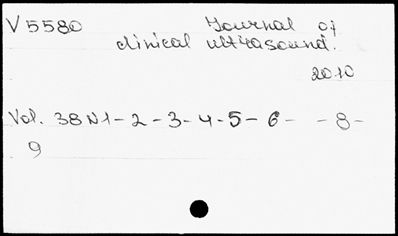 V5580 Journal of
clinical ultrasound.
2010
Vol. 38 N1-2-3-4-5-6- -8-
9